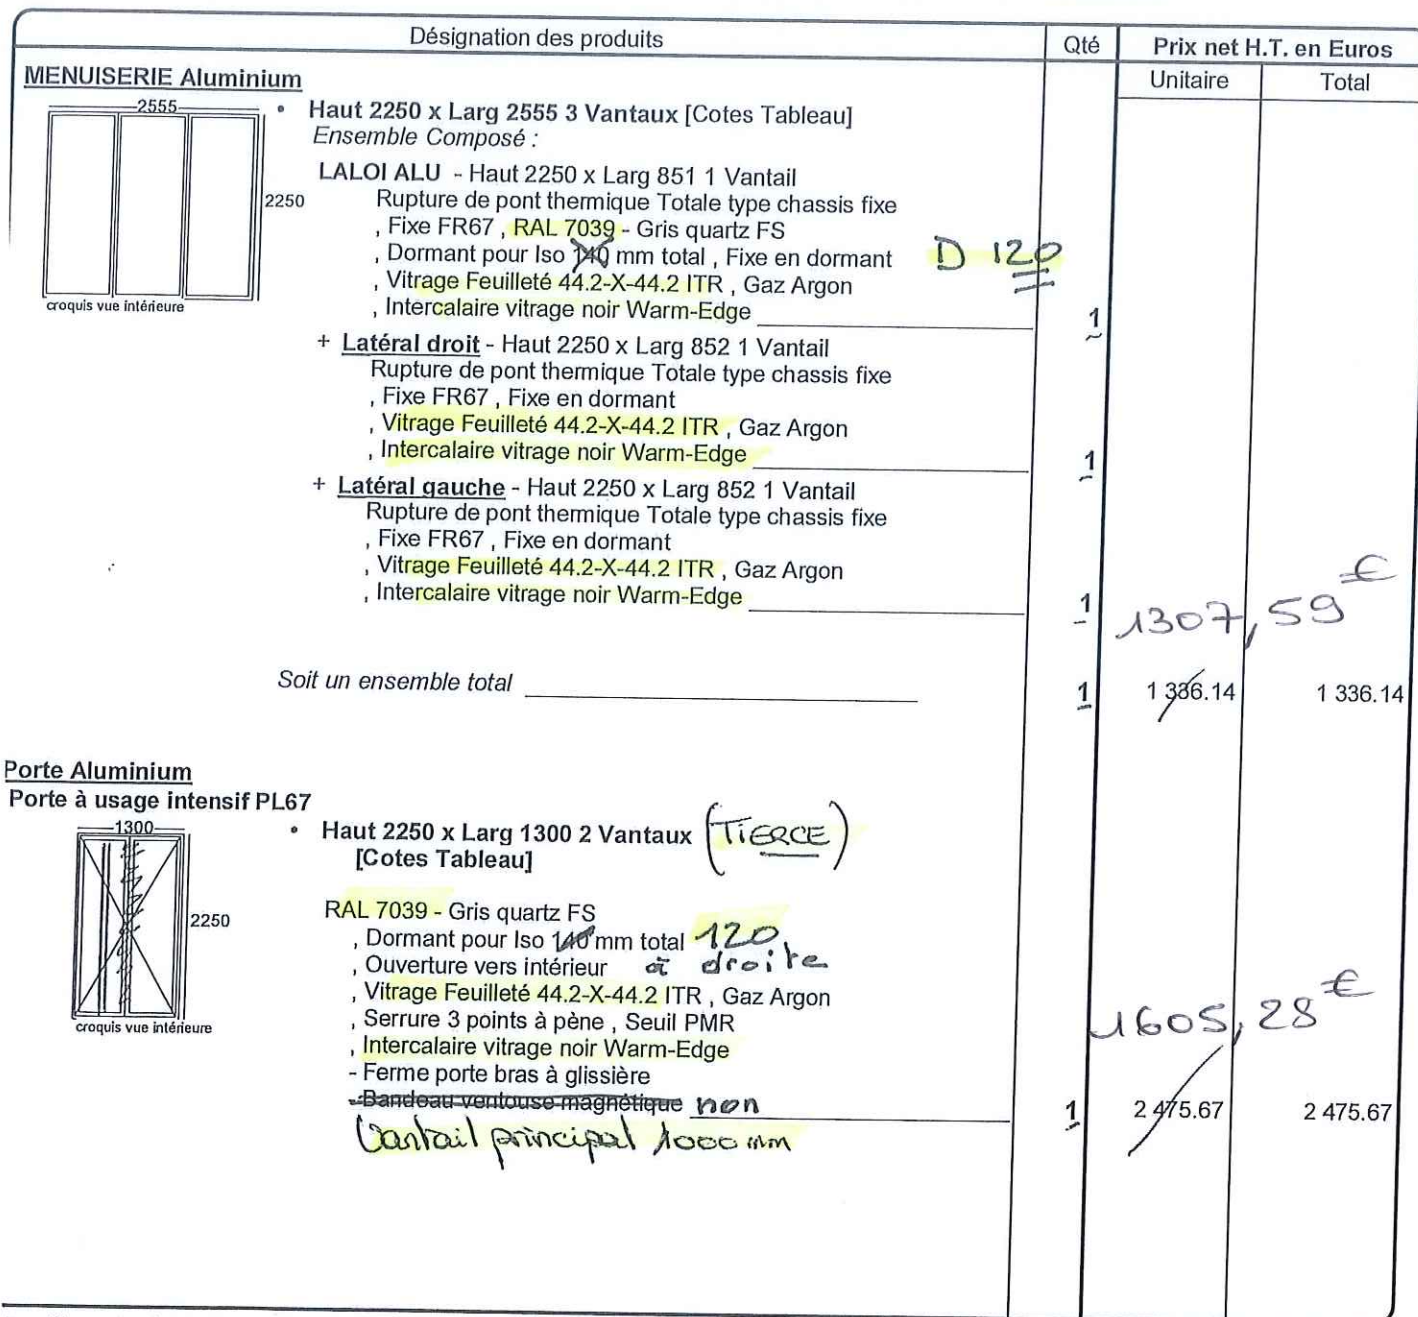 Désignation des produits
Qté
Prix net H.T. en Euros
Unitaire
Total
MENUISERIE Aluminium
2555
2250
croquis vue intérieure
• Haut 2250 x Larg 2555 3 Vantaux [Cotes Tableau]
Ensemble Composé :
LALOI ALU - Haut 2250 x Larg 851 1 Vantail
Rupture de pont thermique Totale type chassis fixe
, Fixe FR67 , RAL 7039 - Gris quartz FS
, Dormant pour Iso 140 mm total , Fixe en dormant D 120
, Vitrage Feuilleté 44.2-X-44.2 ITR , Gaz Argon
, Intercalaire vitrage noir Warm-Edge 1
+ Latéral droit - Haut 2250 x Larg 852 1 Vantail
Rupture de pont thermique Totale type chassis fixe
, Fixe FR67 , Fixe en dormant
, Vitrage Feuilleté 44.2-X-44.2 ITR , Gaz Argon
, Intercalaire vitrage noir Warm-Edge 1
+ Latéral gauche - Haut 2250 x Larg 852 1 Vantail
Rupture de pont thermique Totale type chassis fixe
, Fixe FR67 , Fixe en dormant
, Vitrage Feuilleté 44.2-X-44.2 ITR , Gaz Argon
, Intercalaire vitrage noir Warm-Edge 1
1307,59 €
Soit un ensemble total 1 1 336.14 1 336.14
Porte Aluminium
Porte à usage intensif PL67
1300
2250
croquis vue intérieure
• Haut 2250 x Larg 1300 2 Vantaux (TIERCE)
[Cotes Tableau]
RAL 7039 - Gris quartz FS
, Dormant pour Iso 140 mm total 120
, Ouverture vers intérieur à droite
, Vitrage Feuilleté 44.2-X-44.2 ITR , Gaz Argon
, Serrure 3 points à pène , Seuil PMR
1605,28 €
, Intercalaire vitrage noir Warm-Edge
- Ferme porte bras à glissière
- Bandeau ventouse magnétique non 1 2 475.67 2 475.67
Vantail principal 1000 mm